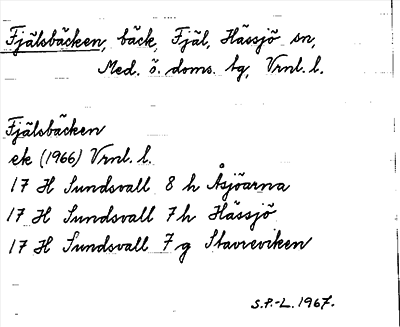 Fjälsbäcken, bäck, Fjäl, Hässjö sn,
Med. ö. doms. bg, Vrnl. l.
Fjälsbäcken
ek (1966) Vrnl. l.
17 H Sundsvall 8 h Åsjöarna
17 H Sundsvall 7 h Hässjö
17 H Sundsvall 7 g Stavreviken
S.P.-L. 1967.